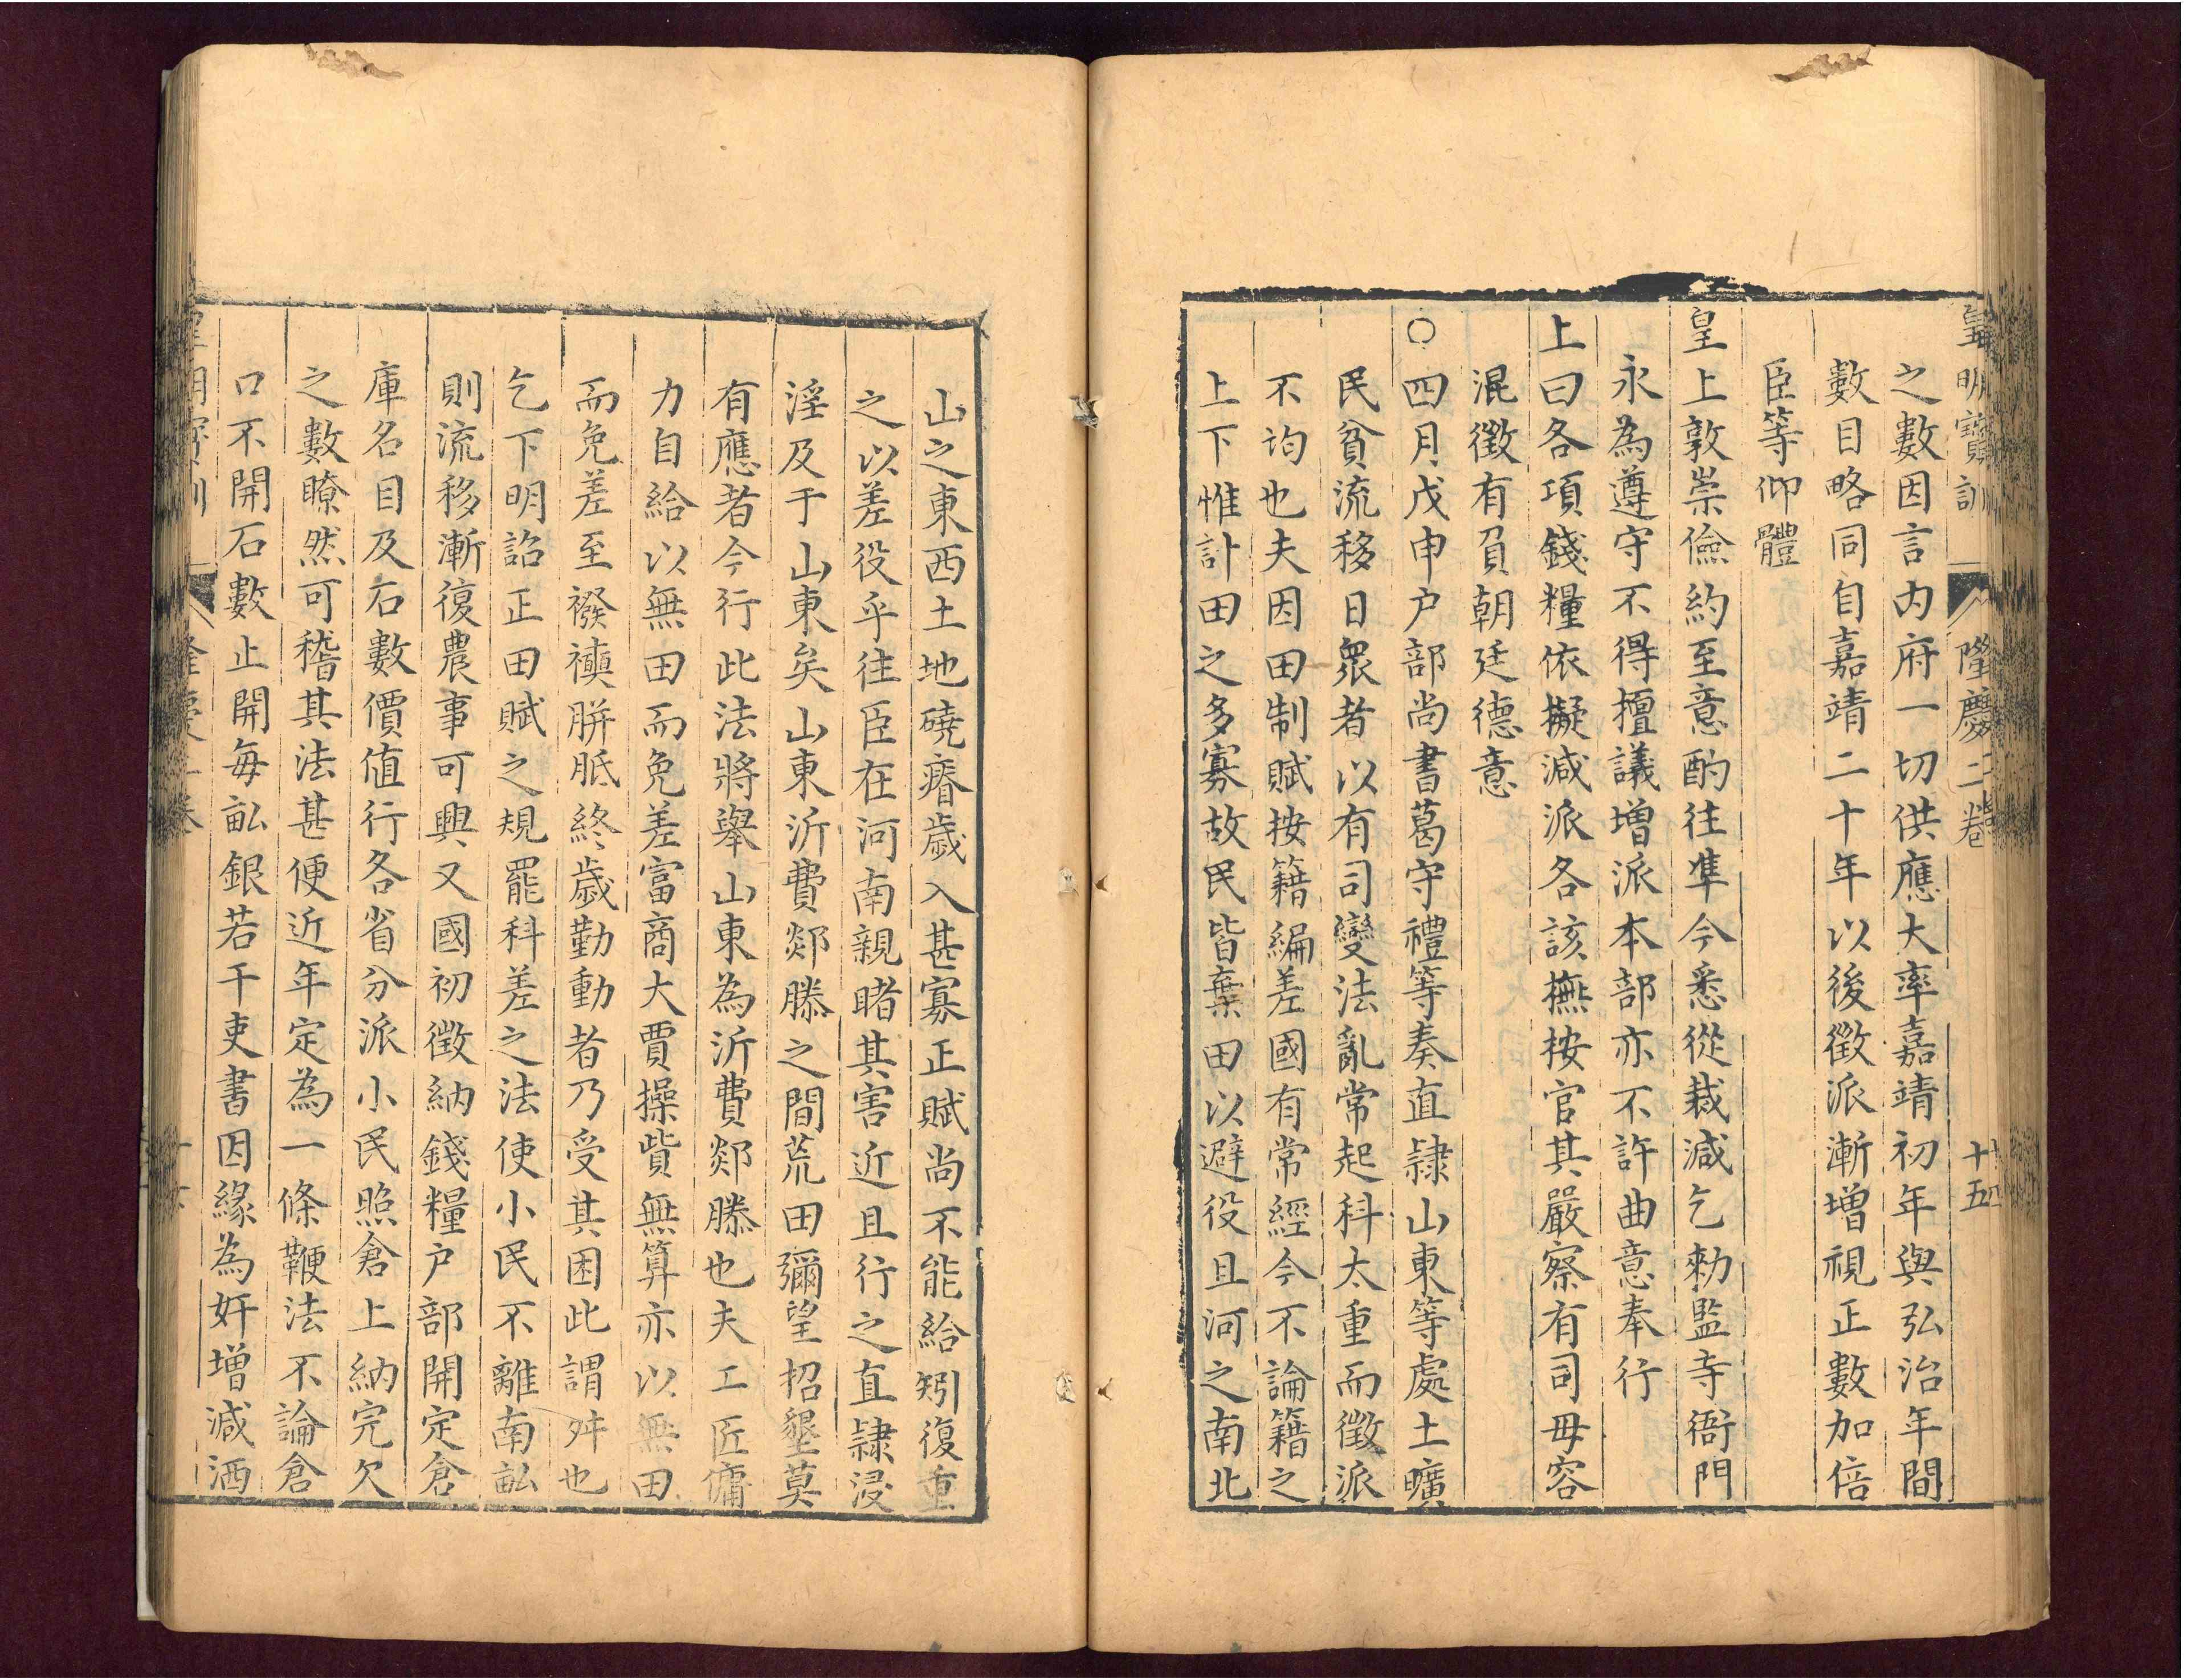 皇明寶訓　隆慶二卷　十五
之數因言內府一切供應大率嘉靖初年與弘治年間
數目略同自嘉靖二十年以後徵派漸增視正數加倍
臣等仰體
皇上敦崇儉約至意酌往準今悉從裁減乞勑監寺衙門
永為遵守不得擅議增派本部亦不許曲意奉行
上曰各項錢糧依擬減派各該撫按官其嚴察有司毋容
混徵有負朝廷德意
○四月戊申户部尚書葛守禮等奏直隷山東等處土曠
民貧流移日衆者以有司變法亂常起科太重而徵派
不均也夫因田制賦按籍編差國有常經今不論籍之
上下惟計田之多寡故民皆棄田以避役且河之南北
山之東西土地磽瘠歲入甚寡正賦尚不能給矧復重
之以差役乎往臣在河南親睹其害近且行之直隷浸
淫及于山東矣山東沂費郯滕之間荒田彌望招墾莫
有應者今行此法將舉山東為沂費郯滕也夫工匠傭
力自給以無田而免差富商大賈操貲無算亦以無田
而免差至襏襫胼胝終歲勤動者乃受其困此謂舛也
乞下明詔正田賦之規罷科差之法使小民不離南畝
則流移漸復農事可興又國初徵納錢糧户部開定倉
庫名目及石數價值行各省分派小民照倉上納完欠
之數瞭然可稽其法甚便近年定為一條鞭法不論倉
口不開石數止開每畝銀若干吏書因緣為奸增減洒